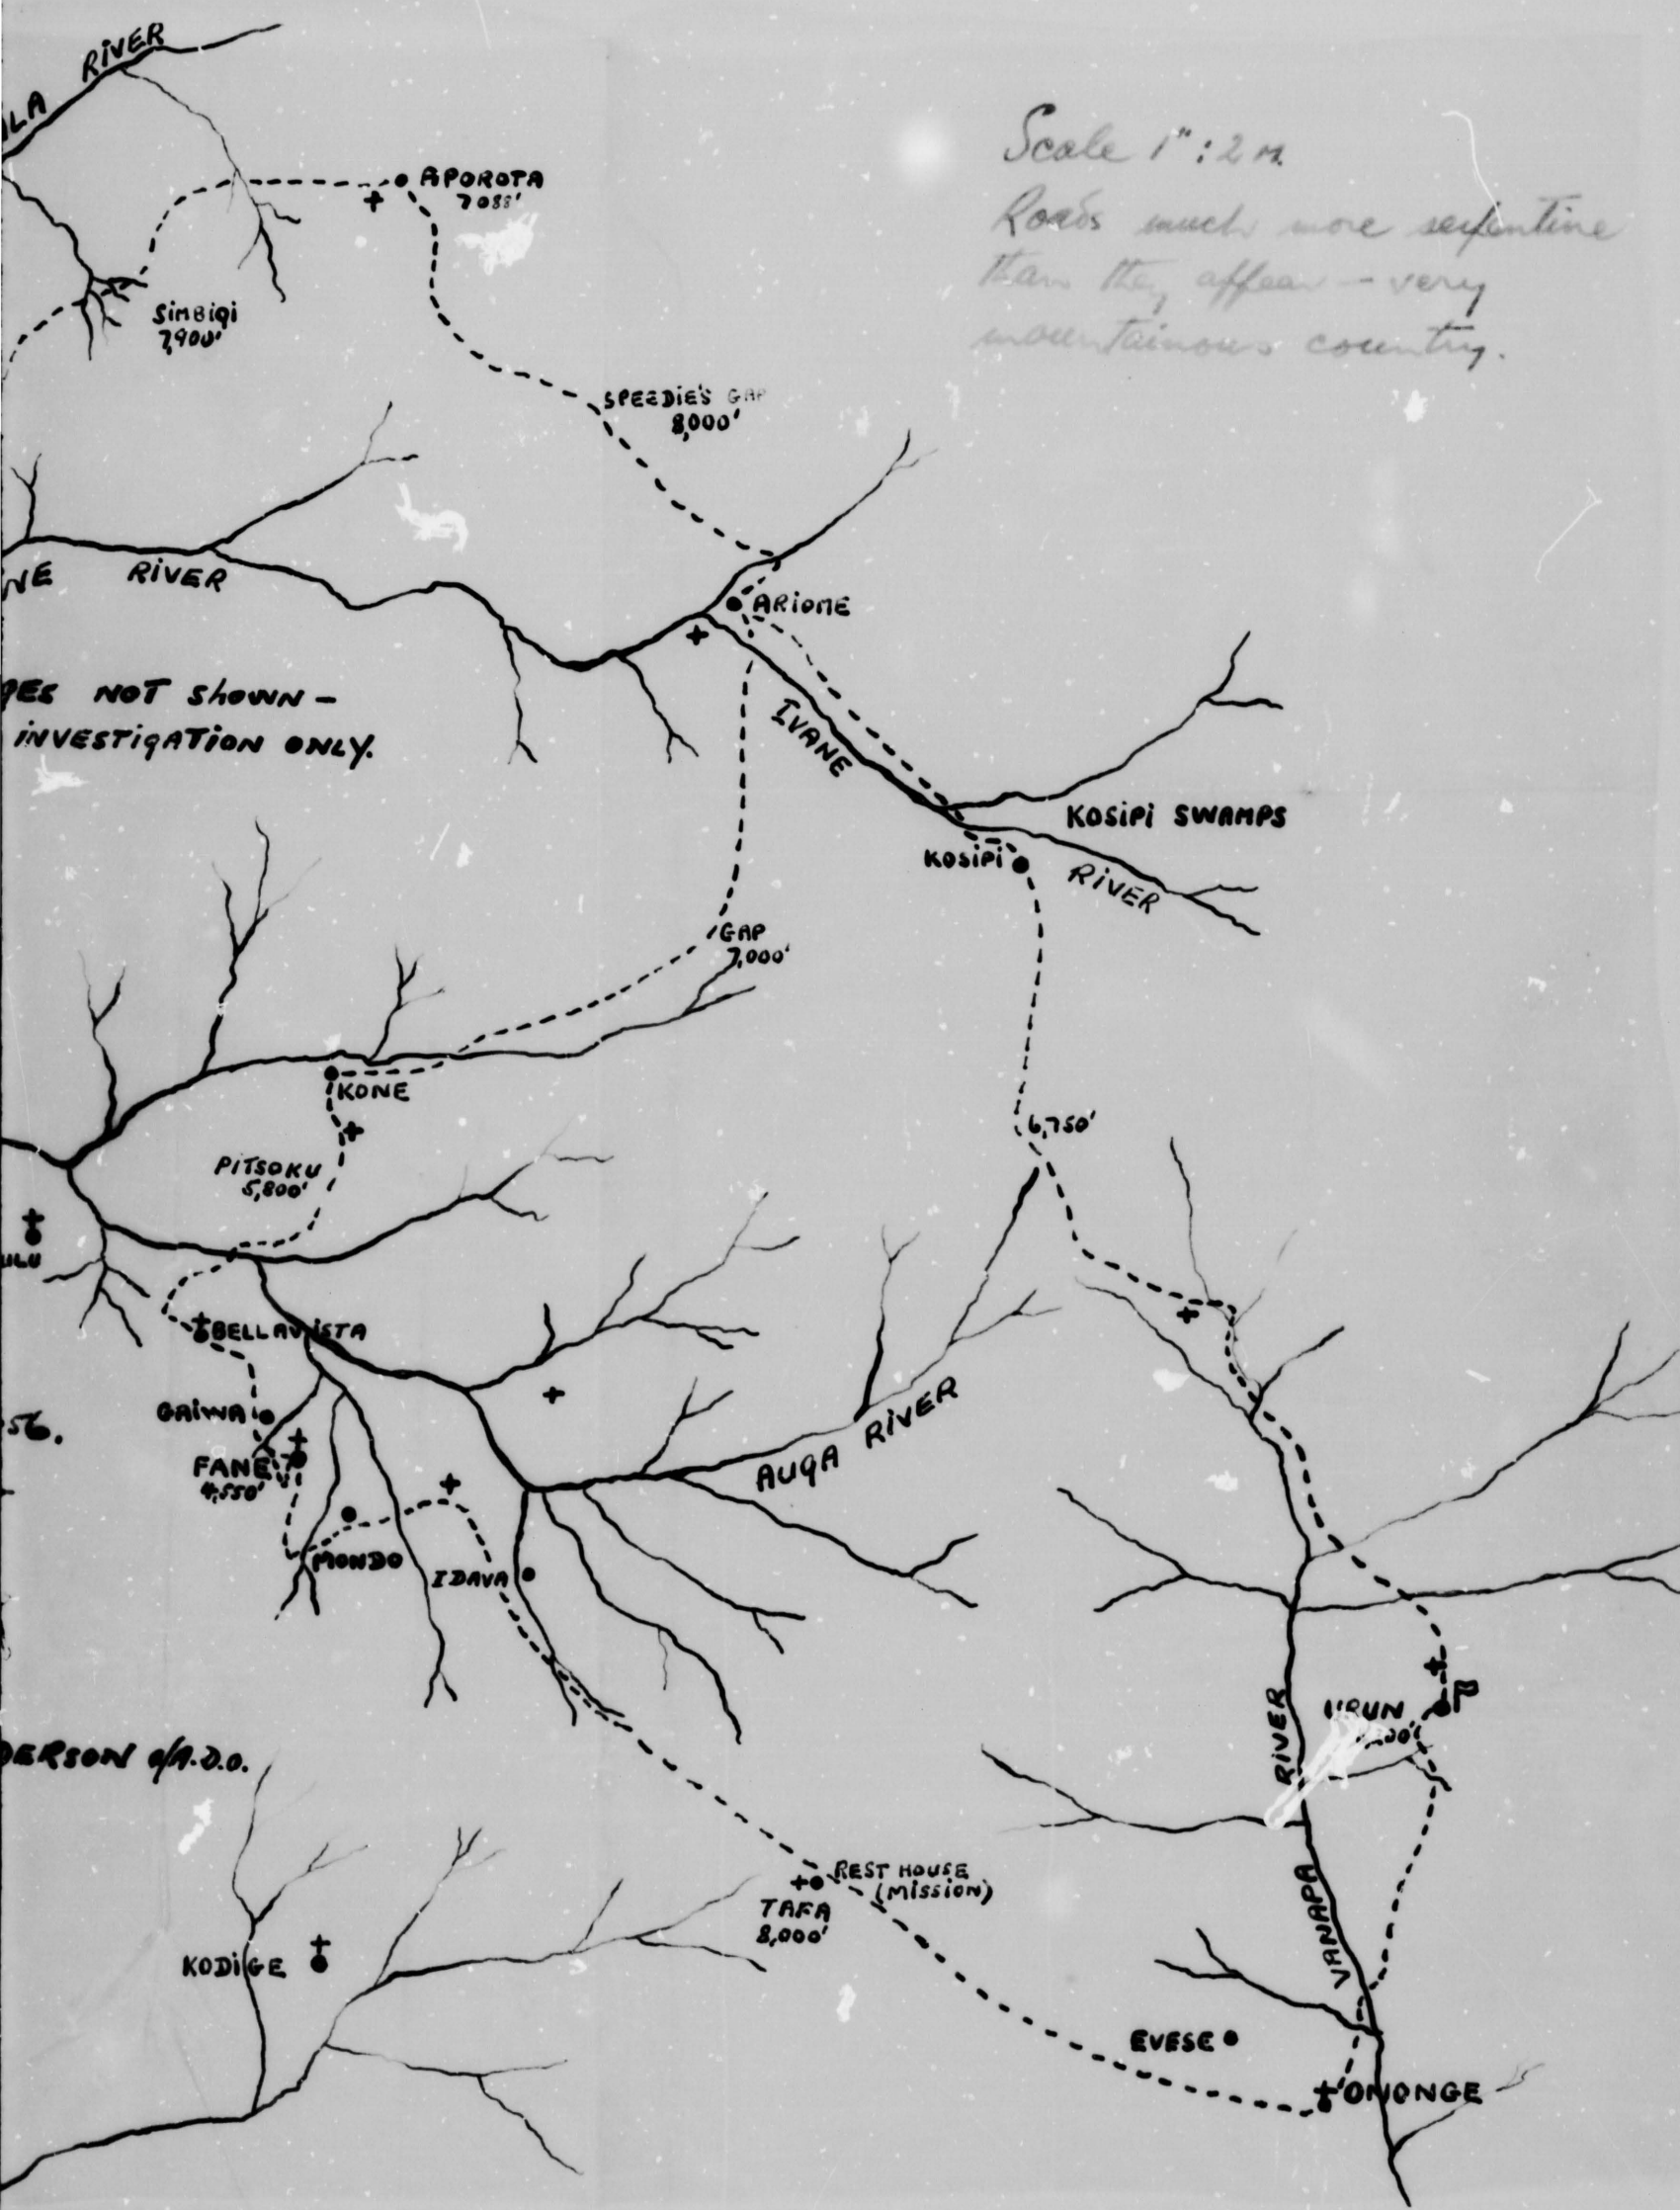 RIVER
Scale 1" : 2 M.
Roads much more serpentine
than they appear - very
mountainous country.
APOROTA
7088'
SIMBIGI
7,900'
SPEEDIE'S GAP
8,000'
RIVER
ARIOME
NOT SHOWN -
INVESTIGATION ONLY.
IVANE
KOSIPI SWAMPS
KOSIPI
RIVER
GAP
7,000'
KONE
6,750'
PITSOKU
5,800'
BELLAVISTA
GAIWA
56.
FANE
4,550'
AUGA RIVER
MONDO
IDAVA
URUN
RIVER
DERSON a/A.D.O.
REST HOUSE
(MISSION)
TAFA
8,000'
VANAPA
KODIGE
EVESE
ONONGE